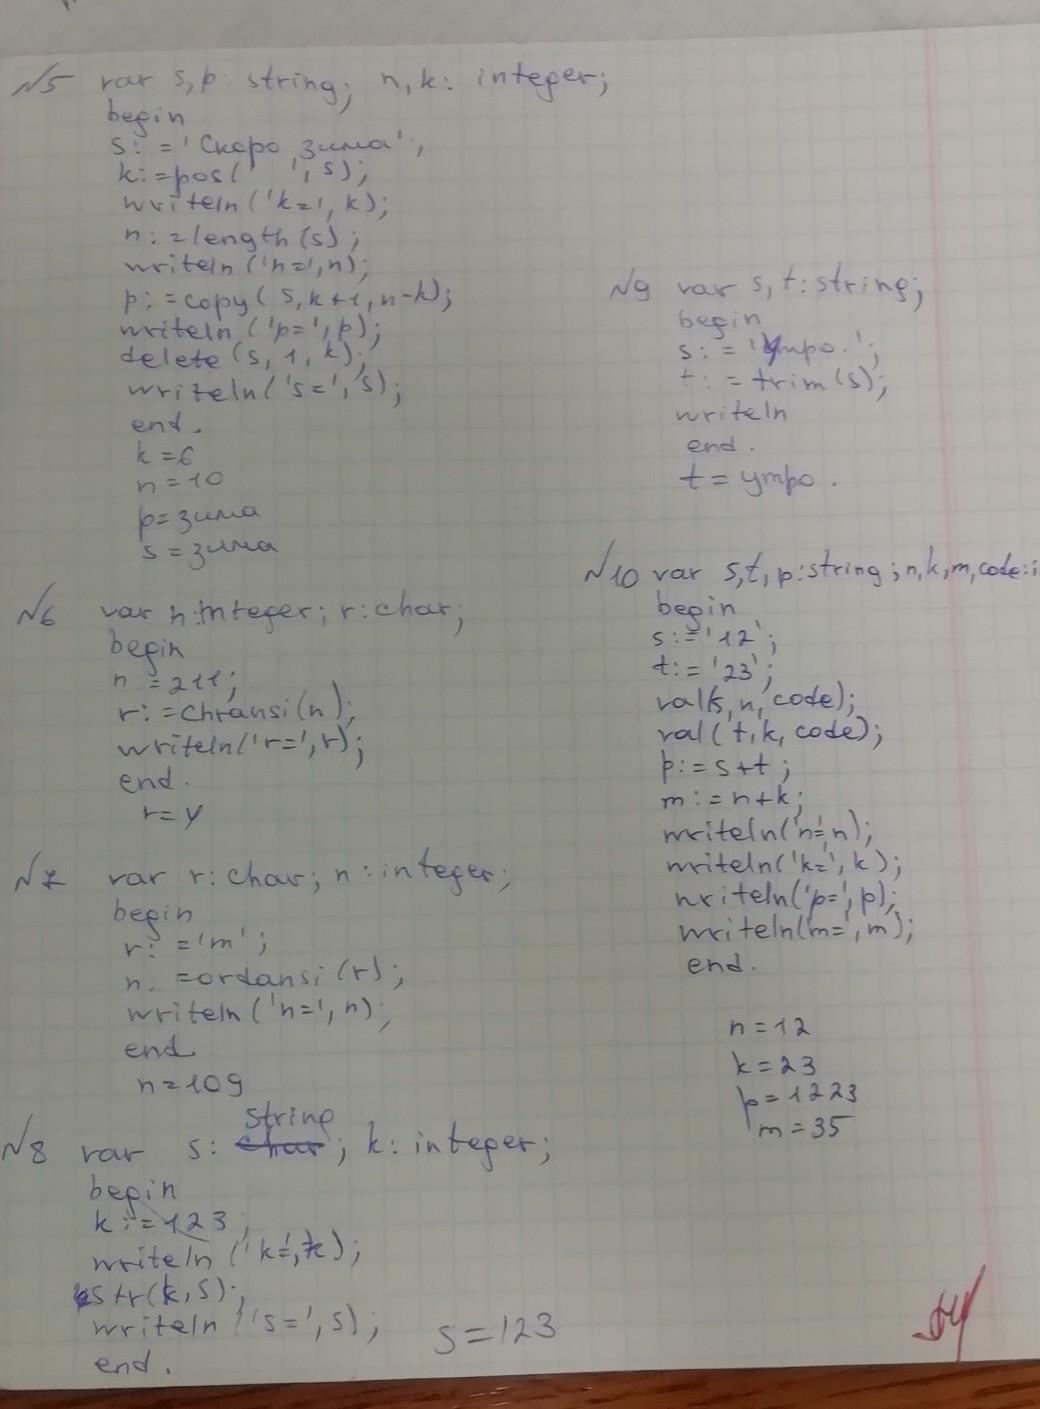 №5 var s,p: string; n,k: integer;
begin
s:='Скоро зима';
k:=pos(' ',s);
writeln('k=',k);
n:=length(s);
writeln('n=',n);
p:=copy(s,k+1,n-k);
writeln('p=',p);
delete(s,1,k);
writeln('s=',s);
end.
k=6
n=10
p=зима
s=зима
№6 var n:integer; r:char;
begin
n:=211;
r:=chransi(n);
writeln('r=',r);
end.
r=У
№7 var r:char; n:integer;
begin
r:='m';
n:=ordansi(r);
writeln('n=',n);
end
n=109
string
№8 var s: char; k: integer;
begin
k:=123;
writeln('k=',k);
str(k,s);
writeln('s=',s);
end.
s=123
№9 var s,t:string;
begin
s:='Утро.';
t:=trim(s);
writeln
end.
t=утро.
№10 var s,t,p:string;n,k,m,code:i
begin
s:='12';
t:='23';
val(s,n,code);
val(t,k,code);
p:=s+t;
m:=n+k;
writeln('n=',n);
writeln('k=',k);
writeln('p=',p);
writeln(m=',m);
end.
n=12
k=23
p=1223
m=35